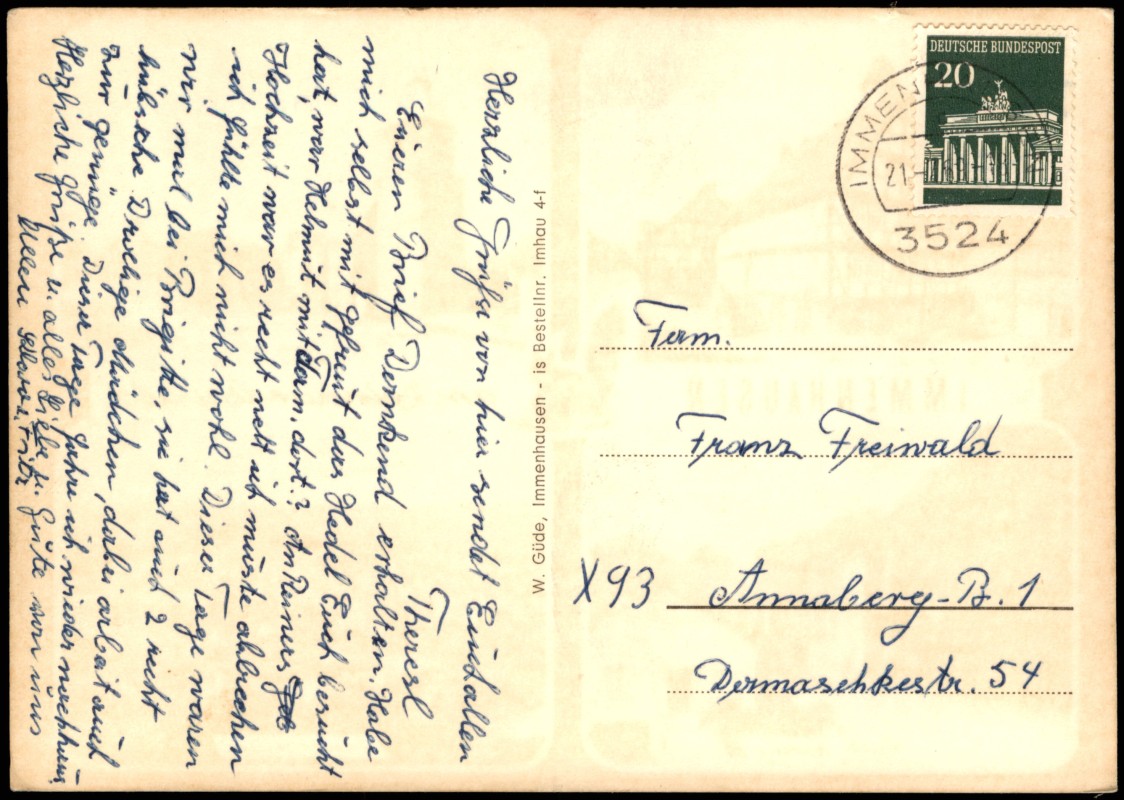 Herzliche Grüße von hier sendet Euch allen
Theresl
Eueren Brief Dankend erhalten. Habe
mich selbst mit gefreut das Hedel Euch besucht
hat, war Helmut mit Fam. dort? An Reiners
Hochzeit war es recht nett ich musste abbrechen
ich fühlte mich nicht wohl. Dieser Tage waren
wir mal bei Brigitte, sie hat auch 2 recht
hübsche Drollige Mädchen, dabei arbeit auch
zur genüge. Dieser Tage fahre ich wieder nach haus
Herzliche Grüße u. alles Liebe u. Gute von uns
Allen
W. Güde, Immenhausen - is Bestellnr. Imhau 4-f
DEUTSCHE BUNDESPOST
20
IMMEN
21.
3524
Fam.
Franz Freiwald
X93 Annaberg-B. 1
Dermaschkestr. 54
IMMENHAUSEN